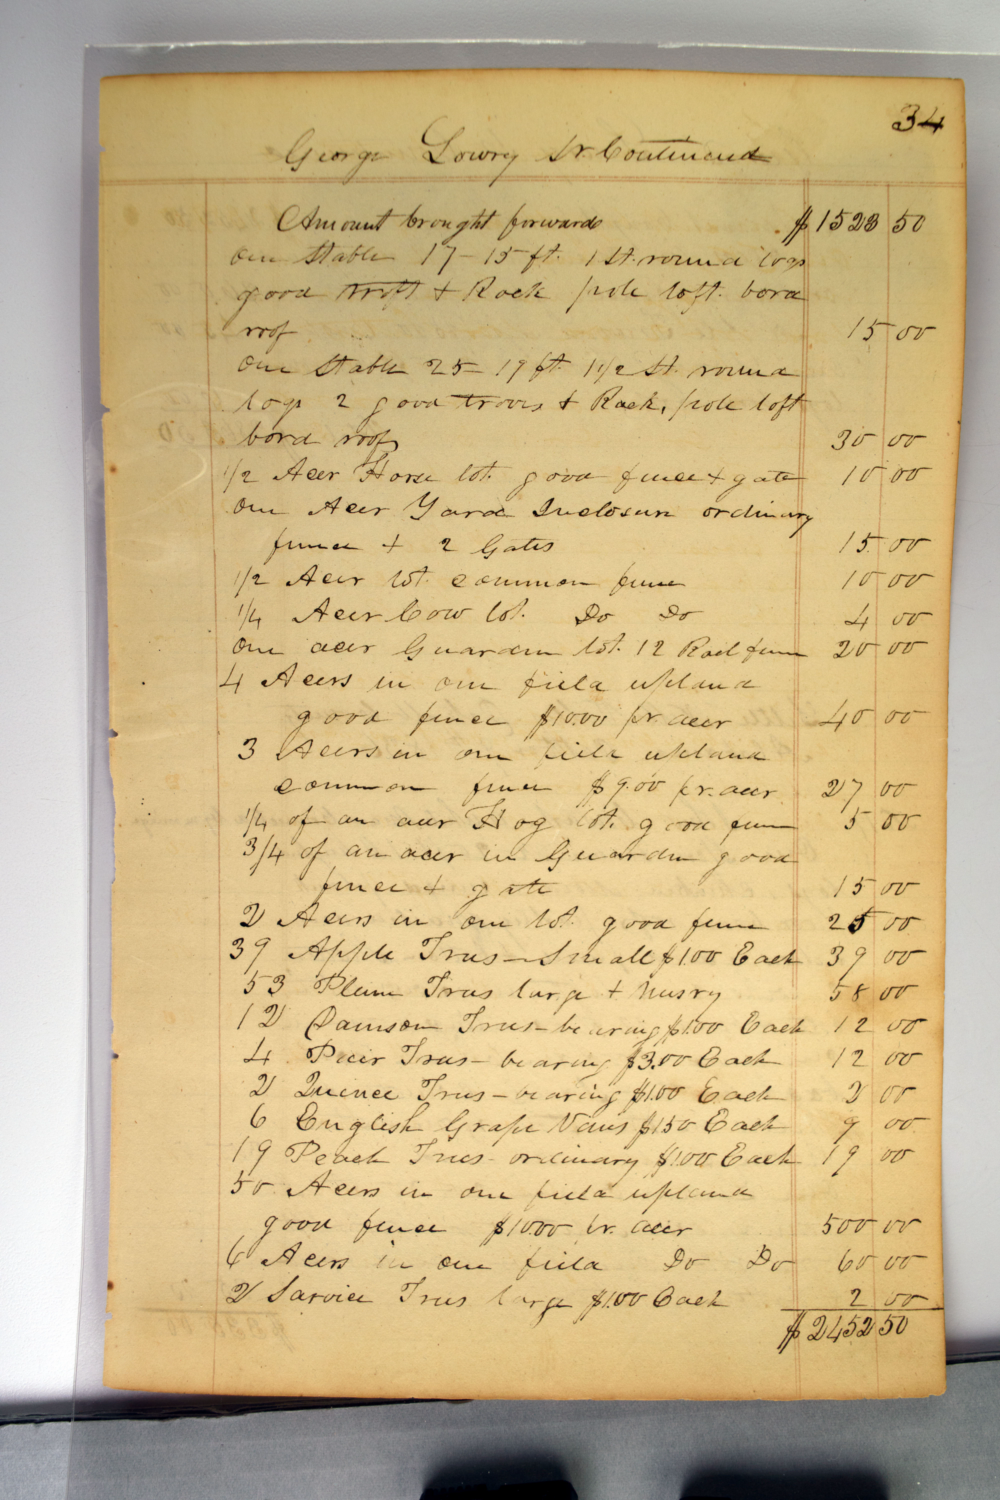 34
George Lowry Sr. Continued
Amount brought forwards $1523 50
One Stable 17-15 ft. 1 St. round logs
good troft & Rack pole loft. bord
roof 15 00
One Stable 25-19 ft. 1 1/2 St. round
logs 2 good trovis & Rack, pole loft
bord roof 30 00
1/2 Acer Horse lot. good fence & gate 10 00
One Acer Yard Inclosure ordinary
fence & 2 Gates 15 00
1/2 Acer lot. common fence 10 00
1/4 Acer Cow lot. Do Do 4 00
One acer Guarden lot. 12 Rail fence 20 00
4 Acers in one field upland
good fence $10.00 pr. acer 40 00
3 Acers in one field upland
common fence $9.00 pr. acer 27 00
1/4 of an acer Hog lot. good fence 5 00
3/4 of an acer in Guarden good
fence & gate 15 00
2 Acers in one lot. good fence 25 00
39 Apple Trees - Small $1.00 Each 39 00
53 Plum Trees large & nusry 58 00
12 Damson Trees - bearing $1.00 Each 12 00
4 Peeir Trees - bearing $3.00 Each 12 00
2 Quince Trees - bearing $1.00 Each 2 00
6 English Grape Vines $1.50 Each 9 00
19 Peach Trees - ordinary $1.00 Each 19 00
50 Acers in one field upland
good fence $10.00 pr. acer 500 00
6 Acers in one field Do Do 60 00
2 Sarvice Trees large $1.00 Each 2 00
$2452 50